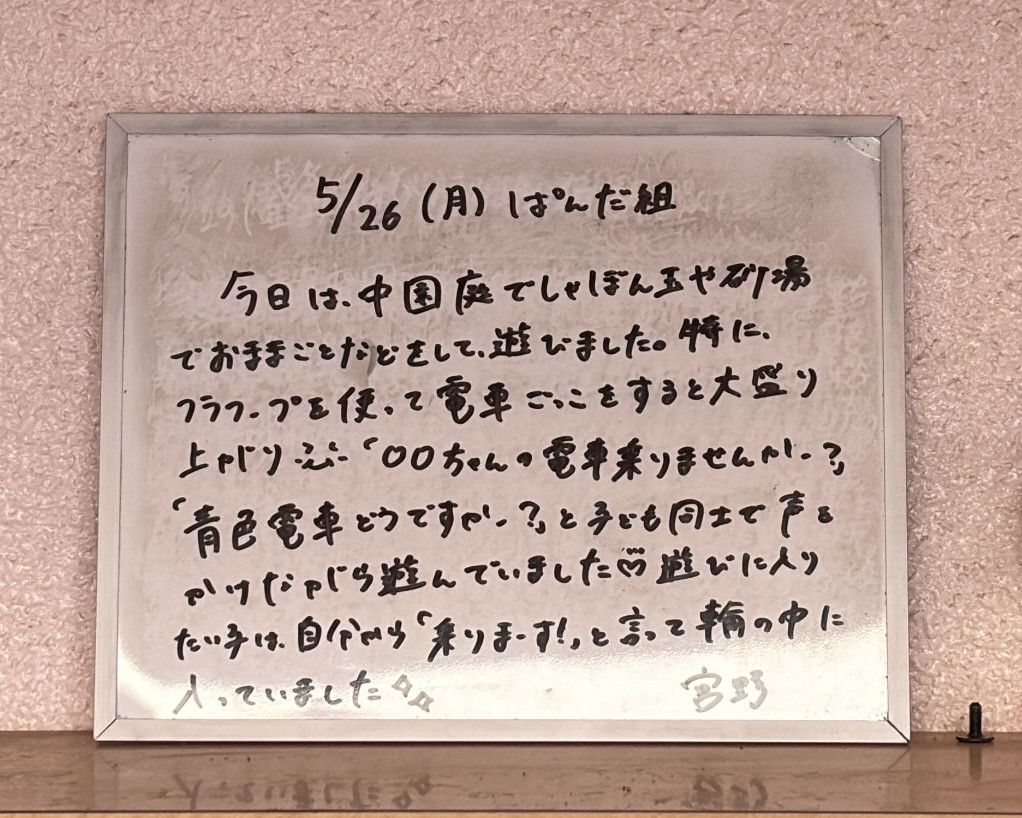 5/26 (月) ぱんだ組
今日は、中園庭でしゃぼん玉や砂場
でおままごとなどをして、遊びました。特に、
フラフープを使って電車ごっこをすると大盛り
上がり 「〇〇ちゃんの電車乗りませんかー?」
「青色電車どうですかー?」と子ども同士で声を
かけながら遊んでいました♡遊びに入り
たい子は、自分から「乗りまーす!」と言って輪の中に
入っていました☆☆
宮野